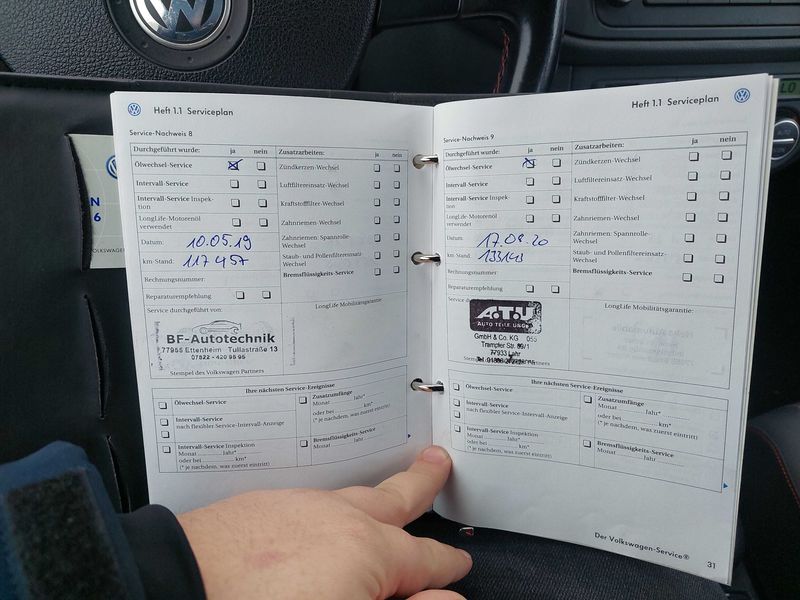 Heft 1.1 Serviceplan
Service-Nachweis 8
Durchgeführt wurde: ja nein
Zusatzarbeiten: ja nein
Ölwechsel-Service
Zündkerzen-Wechsel
Intervall-Service
Luftfiltereinsatz-Wechsel
Intervall-Service Inspek-
tion
Kraftstofffilter-Wechsel
LongLife-Motorenöl
verwendet
Zahnriemen-Wechsel
Datum: 10.05.19
Zahnriemen: Spannrolle-
Wechsel
km-Stand: 117 457
Staub- und Pollenfiltereinsatz-
Wechsel
Rechnungsnummer:
Bremsflüssigkeits-Service
Reparaturempfehlung
Service durchgeführt von:
LongLife Mobilitätsgarantie:
BF-Autotechnik
77955 Ettenheim Tullastraße 13
07822 - 420 95 95
Stempel des Volkswagen Partners
Ihre nächsten Service-Ereignisse
Ölwechsel-Service
Zusatzumfänge
Monat Jahr*
oder bei km*
(* je nachdem, was zuerst eintritt)
Intervall-Service
nach flexibler Service-Intervall-Anzeige
Intervall-Service Inspektion
Monat Jahr*
oder bei km*
(* je nachdem, was zuerst eintritt)
Bremsflüssigkeits-Service
Monat Jahr
Heft 1.1 Serviceplan
Service-Nachweis 9
Durchgeführt wurde: ja nein
Zusatzarbeiten: ja nein
Ölwechsel-Service
Zündkerzen-Wechsel
Intervall-Service
Luftfiltereinsatz-Wechsel
Intervall-Service Inspek-
tion
Kraftstofffilter-Wechsel
LongLife-Motorenöl
verwendet
Zahnriemen-Wechsel
Datum: 17.08.20
Zahnriemen: Spannrolle-
Wechsel
km-Stand: 133143
Staub- und Pollenfiltereinsatz-
Wechsel
Rechnungsnummer:
Bremsflüssigkeits-Service
Reparaturempfehlung
LongLife Mobilitätsgarantie:
A.T.U
AUTO TEILE UNGER
GmbH & Co. KG 055
Trampler Str. 89/1
77933 Lahr
Partners
Ihre nächsten Service-Ereignisse
Ölwechsel-Service
Zusatzumfänge
Monat Jahr*
oder bei km*
(* je nachdem, was zuerst eintritt)
Intervall-Service
nach flexibler Service-Intervall-Anzeige
Intervall-Service Inspektion
Monat Jahr*
oder bei km*
(* je nachdem, was zuerst eintritt)
Bremsflüssigkeits-Service
Monat Jahr
Der Volkswagen-Service®
31